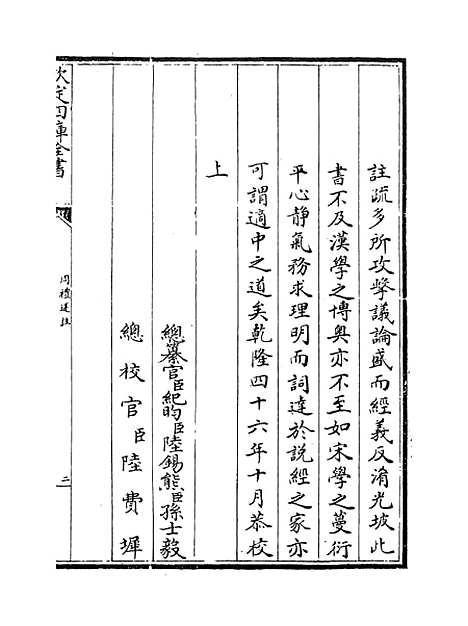 註疏多所攻擊議論盛而經義反淆光坡此
書不及漢學之博奥亦不至如宋學之蔓衍
平心静氣務求理明而詞達於説經之家亦
可謂適中之道矣乾隆四十六年十月恭校
上
總纂官臣紀昀臣陸錫熊臣孫士毅
總校官臣陸費墀
欽定四庫全書
周禮述註
二